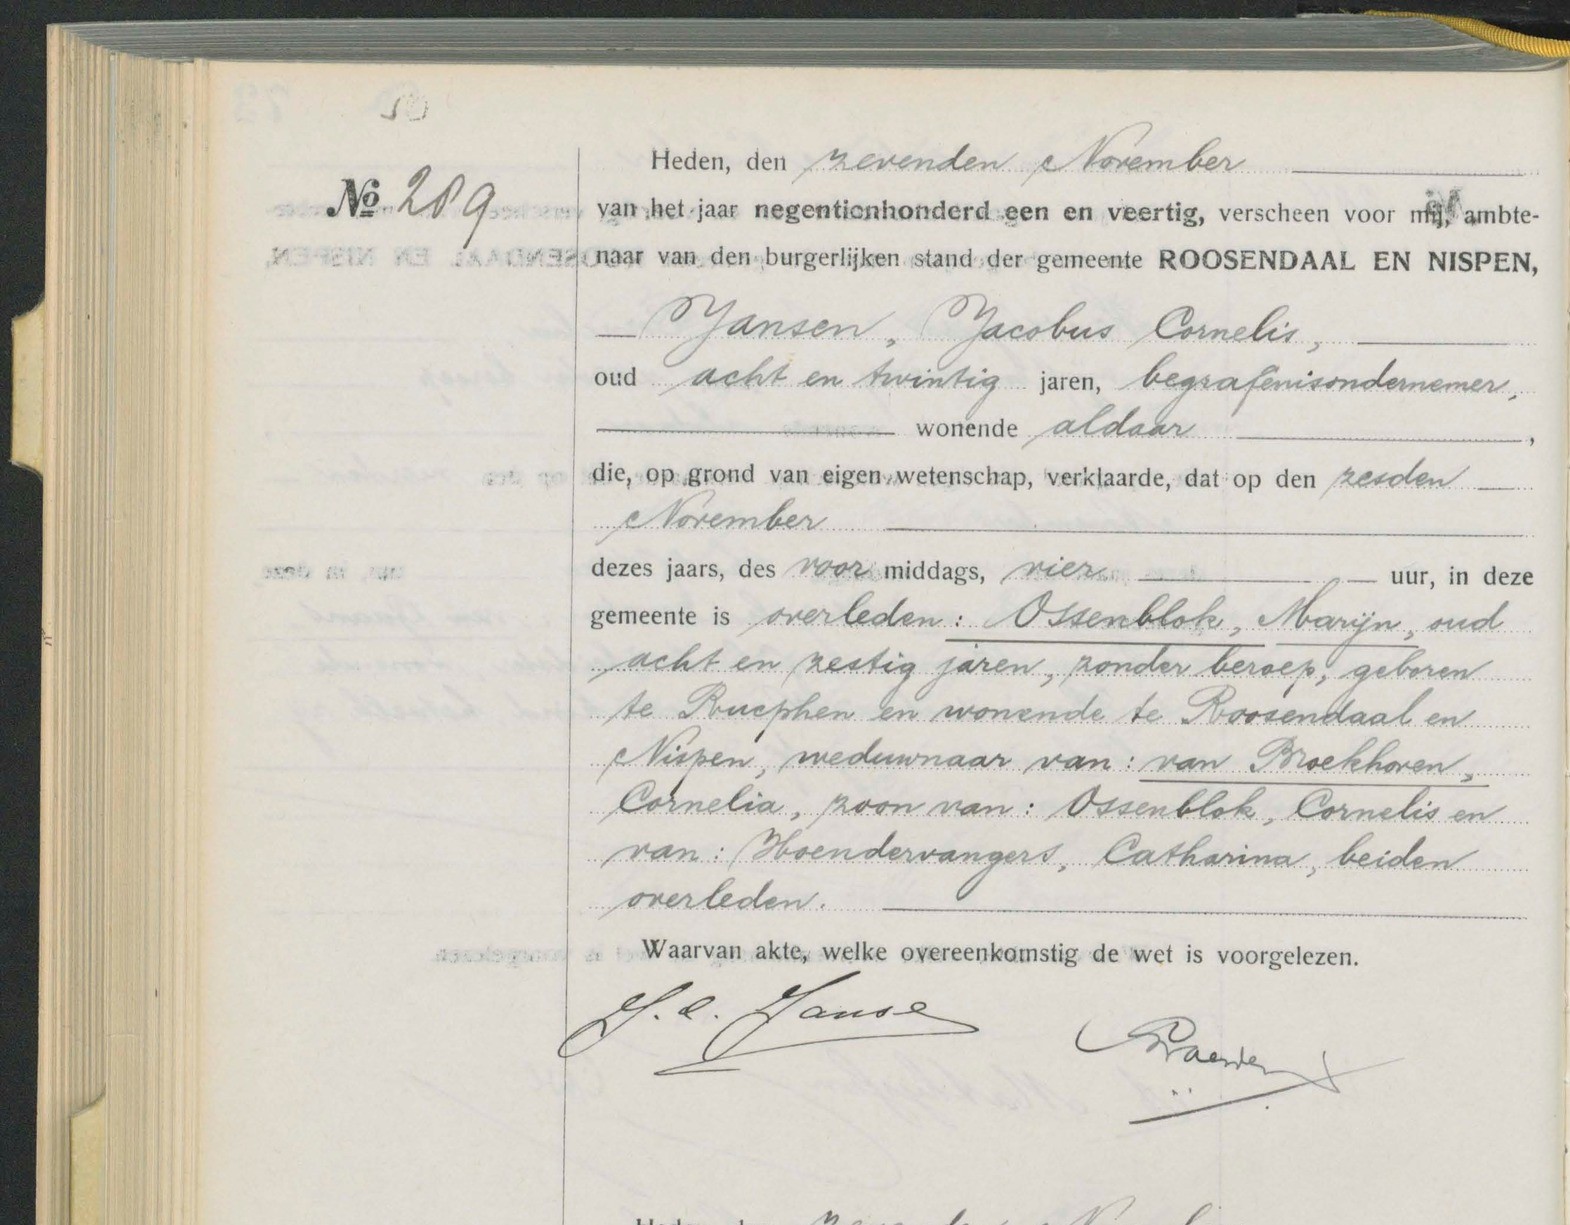 Nº 289
Heden, den zevenden November
van het jaar negentienhonderd een en veertig, verscheen voor mij, ambte-
naar van den burgerlijken stand der gemeente ROOSENDAAL EN NISPEN,
Jansen, Jacobus Cornelis,
oud acht en twintig jaren, begrafenisondernemer,
wonende aldaar,
die, op grond van eigen wetenschap, verklaarde, dat op den zesden
November
dezes jaars, des voor middags, vier uur, in deze
gemeente is overleden: Ossenblok, Marijn, oud
acht en zestig jaren, zonder beroep, geboren
te Rucphen en wonende te Roosendaal en
Nispen, weduwnaar van: van Broekhoven,
Cornelia, zoon van: Ossenblok, Cornelis en
van: Hoendervangers, Catharina, beiden
overleden.
Waarvan akte, welke overeenkomstig de wet is voorgelezen.
J. C. Janse